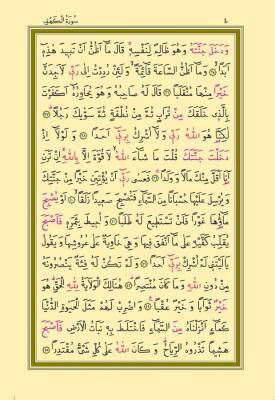 سُورَةُ الْكَهْفِ
وَدَخَلَ جَنَّتَهُ وَهُوَ ظَالِمٌ لِنَفْسِهِ قَالَ مَٓا اَظُنُّ اَنْ تَب۪يدَ هٰذِه۪ٓ
اَبَدًا ۞ وَمَٓا اَظُنُّ السَّاعَةَ قَٓائِمَةً وَلَئِنْ رُدِدْتُ اِلٰى رَبّ۪ي لَاَجِدَنَّ
خَيْرًا مِنْهَا مُنْقَلَبًا ۞ قَالَ لَهُ صَاحِبُهُ وَهُوَ يُحَاوِرُهُٓ اَكَفَرْتَ
بِالَّذ۪ي خَلَقَكَ مِنْ تُرَابٍ ثُمَّ مِنْ نُطْفَةٍ ثُمَّ سَوّٰيكَ رَجُلًا ۞
لٰكِنَّا هُوَ اللّٰهُ رَبّ۪ي وَلَٓا اُشْرِكُ بِرَبّ۪ٓي اَحَدًا ۞ وَلَوْلَٓا اِذْ
دَخَلْتَ جَنَّتَكَ قُلْتَ مَا شَٓاءَ اللّٰهُ لَا قُوَّةَ اِلَّا بِاللّٰهِ اِنْ تَرَنِ
اَنَا اَقَلَّ مِنْكَ مَالًا وَوَلَدًا ۞ فَعَسٰى رَبّ۪ٓي اَنْ يُؤْتِيَنِ خَيْرًا مِنْ جَنَّتِكَ
وَيُرْسِلَ عَلَيْهَا حُسْبَانًا مِنَ السَّمَٓاءِ فَتُصْبِحَ صَع۪يدًا زَلَقًا ۞ اَوْ يُصْبِحَ
مَٓاؤُهَا غَوْرًا فَلَنْ تَسْتَط۪يعَ لَهُ طَلَبًا ۞ وَاُح۪يطَ بِثَمَرِه۪ فَاَصْبَحَ
يُقَلِّبُ كَفَّيْهِ عَلٰى مَٓا اَنْفَقَ ف۪يهَا وَهِيَ خَاوِيَةٌ عَلٰى عُرُوشِهَا وَيَقُولُ
يَا لَيْتَن۪ي لَمْ اُشْرِكْ بِرَبّ۪ٓي اَحَدًا ۞ وَلَمْ تَكُنْ لَهُ فِئَةٌ يَنْصُرُونَهُ
مِنْ دُونِ اللّٰهِ وَمَا كَانَ مُنْتَصِرًا ۞ هُنَالِكَ الْوَلَايَةُ لِلّٰهِ الْحَقِّ هُوَ
خَيْرٌ ثَوَابًا وَخَيْرٌ عُقْبًا ۞ وَاضْرِبْ لَهُمْ مَثَلَ الْحَيٰوةِ الدُّنْيَا
كَمَٓاءٍ اَنْزَلْنَاهُ مِنَ السَّمَٓاءِ فَاخْتَلَطَ بِه۪ نَبَاتُ الْاَرْضِ فَاَصْبَحَ
هَش۪يمًا تَذْرُوهُ الرِّيَاحُ وَكَانَ اللّٰهُ عَلٰى كُلِّ شَيْءٍ مُقْتَدِرًا ۞